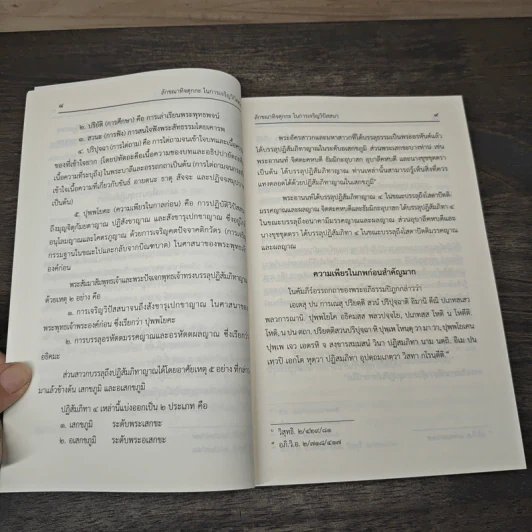 ๘
ลักขณาทิจตุกกะ ในการเจริญวิปัสสนา
๒. ปริยัติ (การศึกษา) คือ การเล่าเรียนพระพุทธพจน์
๓. สวนะ (การฟัง) การสนใจฟังพระสัทธรรมโดยเคารพ
๔. ปริปุจฉา (การไต่ถาม) คือ การไต่ถามจนเข้าใจบทและเนื้อ
ของที่เข้าใจยาก (โดยปทัตถะคือเนื้อความของบทและอธิปปา
เนื้อความที่ระบุถึง) ในพระบาลีและอรรถกถาเป็นต้น (การไต่ถามจน
เข้าใจเนื้อความที่เกี่ยวกับขันธ์ อายตนะ ธาตุ สัจจะ และปฏิจจสมุป
เป็นต้น)
๕. ปุพพโยคะ (ความเพียรในกาลก่อน) คือ การปฏิบัติวิปัสสนา
ถึงมุญจิตุกัมยตาญาณ ปฏิสังขาญาณ และสังขารุเปกขาญาณ ซึ่งอยู่
อนุโลมญาณและโคตรภูญาณ ด้วยการเจริญคตปัจจาคติกวัตร (การเจริญ
กรรมฐานในขณะไปและกลับจากบิณฑบาต) ในศาสนาของพระพุทธเจ้า
องค์ก่อน
พระสัมมาสัมพุทธเจ้าและพระปัจเจกพุทธเจ้าทรงบรรลุปฏิสัมภิทาญาณ
ด้วยเหตุ ๒ อย่าง คือ
๑. การเจริญวิปัสสนาจนถึงสังขารุเปกขาญาณ ในศาสนาของ
พระพุทธเจ้าพระองค์ก่อน ซึ่งเรียกว่า ปุพพโยคะ
๒. การบรรลุอรหัตตมรรคญาณและอรหัตตผลญาณ ซึ่งเรียกว่า
อธิคมะ
ส่วนสาวกบรรลุถึงปฏิสัมภิทาญาณได้โดยอาศัยเหตุ ๕ อย่าง ที่กล่าว
มาแล้วข้างต้น เสกขภูมิ และอเสกขภูมิ
ปฏิสัมภิทา ๔ เหล่านี้แบ่งออกเป็น ๒ ประเภท คือ
๑. เสกขภูมิ ระดับพระเสกขะ
๒. อเสกขภูมิ ระดับพระอเสกขะ
ลักขณาทิจตุกกะ ในการเจริญวิปัสสนา
๙
พระอัครสาวกและมหาสาวกที่ได้บรรลุธรรมเป็นพระอรหันต์แล้ว
ได้บรรลุปฏิสัมภิทาญาณในระดับอเสกขภูมิ ส่วนพระเสกขบางท่าน เช่น
พระอานนท์ จิตตะคหบดี ธัมมิกอุบาสก อุบาลีคหบดี และนางขุชชุตตรา
เป็นต้น ได้บรรลุปฏิสัมภิทาญาณ ท่านเหล่านั้นสามารถรู้เห็นสิ่งที่ควร
แทงตลอดได้ด้วยปฏิสัมภิทาญาณในเสกขภูมิ
พระอานนท์ได้บรรลุปฏิสัมภิทา ๔ ในขณะบรรลุถึงโสดาปัตติ-
มรรคญาณและผลญาณ จิตตะคหบดีและธัมมิกอุบาสก ได้บรรลุปฏิสัมภิทา ๔
ในขณะบรรลุถึงอนาคามีมรรคญาณและผลญาณ ส่วนอุบาลีคหบดีและ
นางขุชชุตตรา ได้บรรลุปฏิสัมภิทา ๔ ในขณะบรรลุถึงโสดาปัตติมรรคญาณ
และผลญาณ
ความเพียรในภพก่อนสำคัญมาก
ในคัมภีร์อรรถกถาของพระอภิธรรมปิฎกกล่าวว่า
เอเตสุ ปน การเณสุ ปริยตฺติ สวนํ ปริปุจฺฉาติ อิมานิ ตีณิ ปเภทสฺเสว
พลวการณานิ. ปุพฺพโยโค อธิคมสฺส พลวปจฺจโย, ปเภทสฺส โหติ น โหตีติ.
โหติ, น ปน ตถา. ปริยตฺติสวนปริปุจฺฉา หิ ปุพฺเพ โหนฺตุ วา มา วา, ปุพฺพโยเคน
ปุพฺเพ เจว เอตรหิ จ สงฺขารสมฺมสนํ วินา ปฏิสมฺภิทา นาม นตฺถิ. อิเม ปน
เทฺวปิ เอกโต หุตฺวา ปฏิสมฺภิทา อุปตฺถมฺเภตฺวา วิสทา กโรนฺตีติ.
วิสุทธิ. ๒/๔๒๙/๘๑
อภิ.วิ.อ. ๒/๗๑๘/๔๑๗